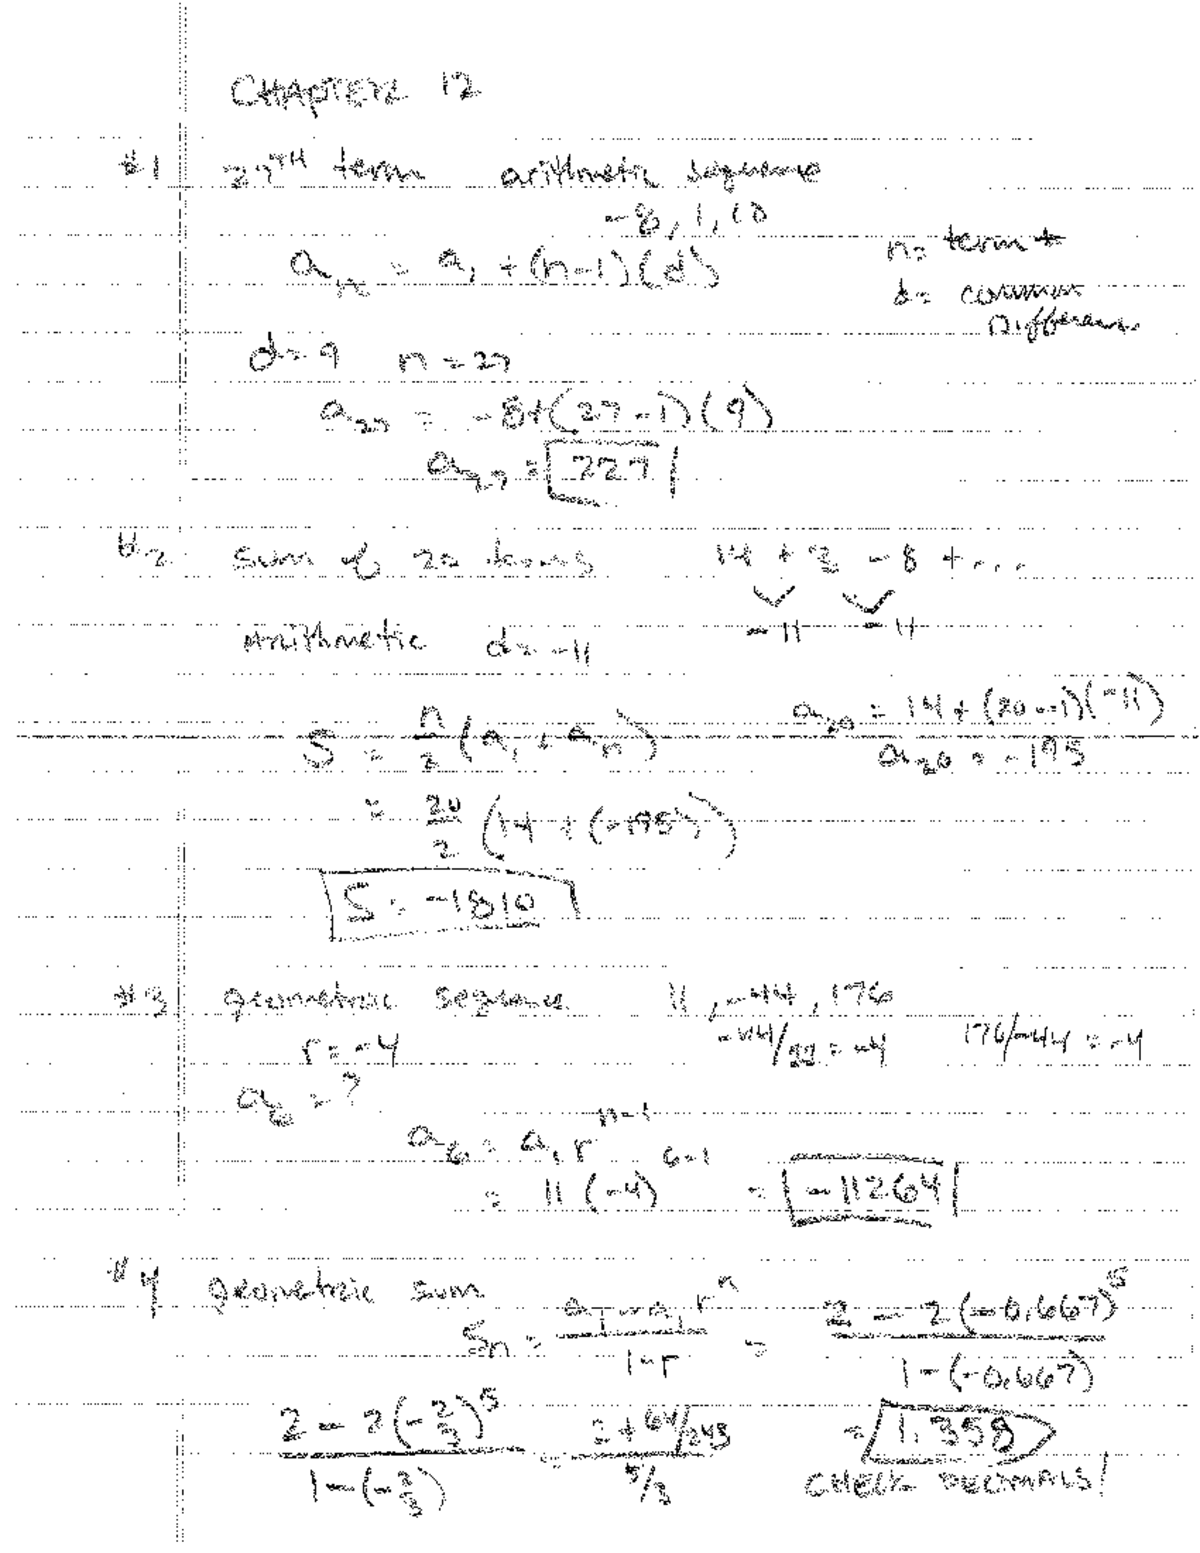 CHAPTER 12
#1 27TH term arithmetic sequence
-8, 1, 10
aₙ = a₁ + (n-1)(d)
n = term #
d = common
Difference
d = 9 n = 27
a₂₇ = -8+(27-1)(9)
a₂₇ = 227
#2 Sum of 20 terms 14 + 3 - 8 + ...
-11 -11
Arithmetic d = -11
a₂₀ = 14 + (20-1)(-11)
S = n/2 (a₁ + aₙ)
a₂₀ = -195
= 20/2 (14 + (-195))
S = -1810
#3 geometric sequence 11, -44, 176
r = -4 -44/ = -4 176/-44 = -4
a₆ = ?
a₆ = a₁ rⁿ⁻¹
= 11 (-4)⁶⁻¹ = -11264
#4 geometric sum
Sₙ = (a₁ - a₁rⁿ)/(1-r) = (2 - 2(-0.667)⁵)/(1-(-0.667))
(2 - 2(-2/3)⁵)/(1-(-2/3)) = (2 + 64/243)/(5/3) = 1.358
CHECK DECIMALS!